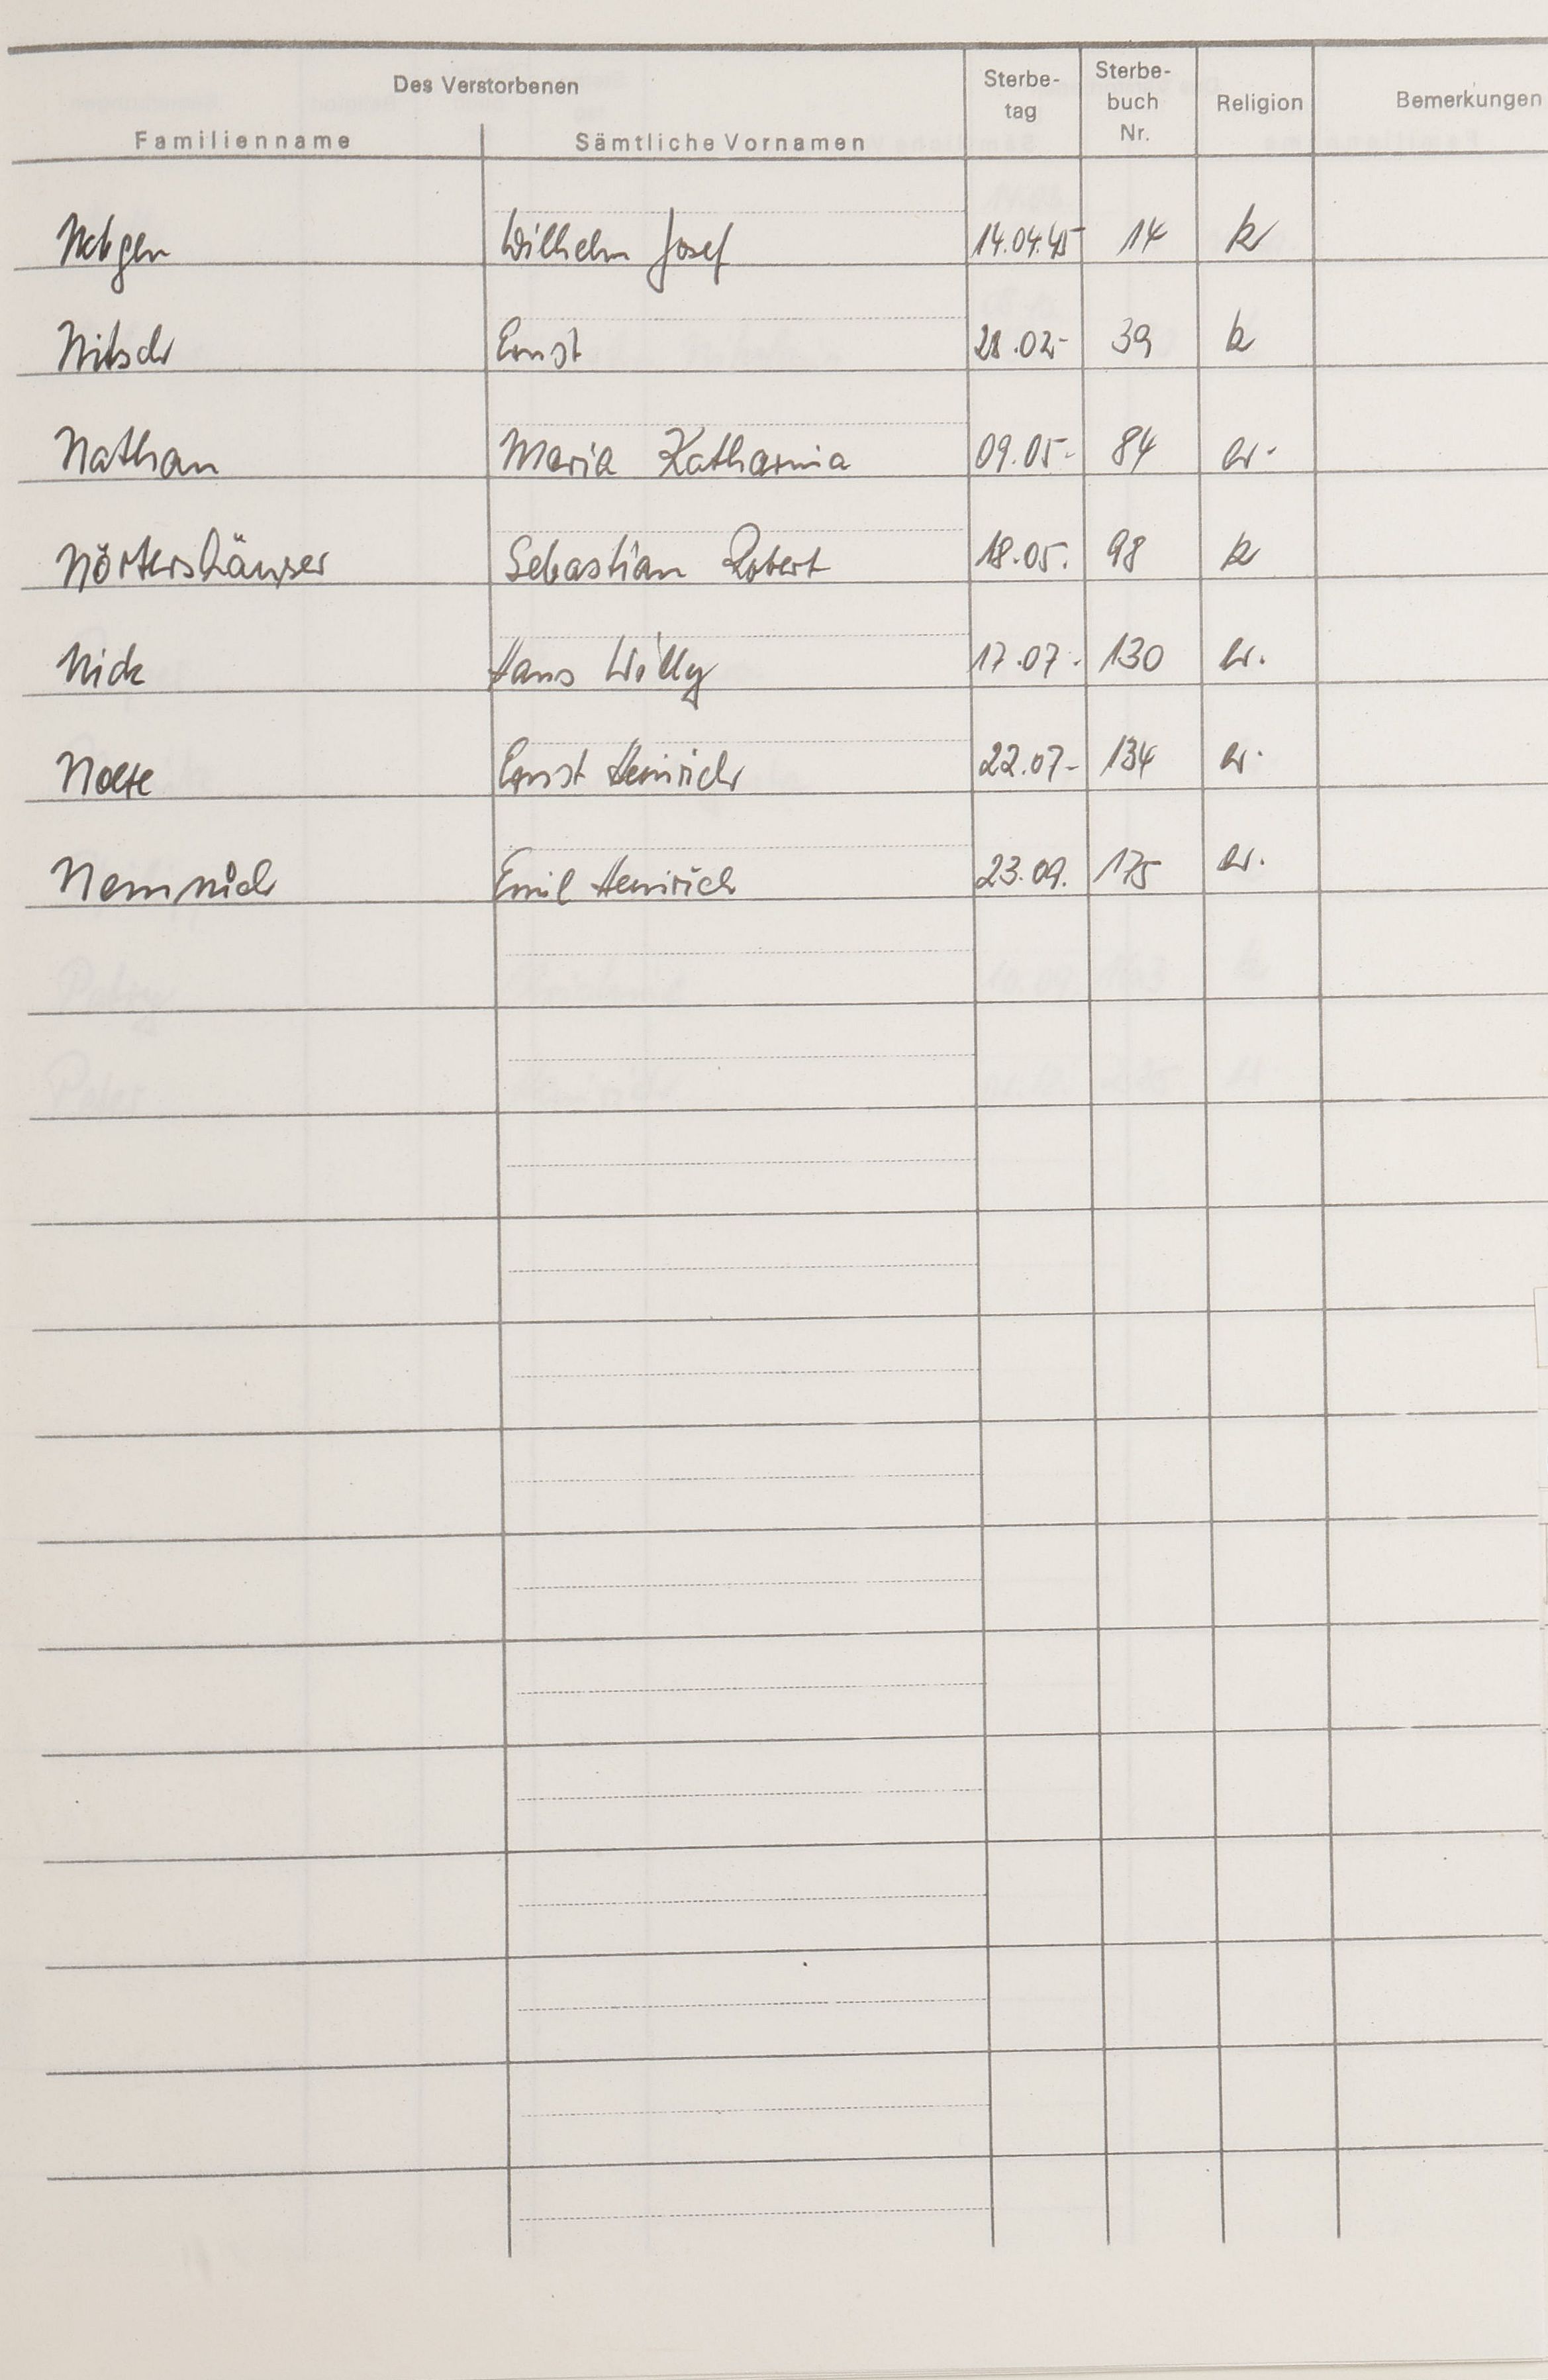 Des Verstorbenen Sterbe- Sterbe- Religion Bemerkungen
Familienname Sämtliche Vornamen tag buch Nr.
Wilhelm Josef 14.04.45 14 k
Nitsch Ernst 28.02. 39 k
Nathan Maria Katharina 09.05. 84 ev.
Nörtershäuser Sebastian Robert 18.05. 98 k
Nick Hans Willy 17.07. 130 ev.
Nolte Ernst Heinrich 22.07. 134 ev.
Nemnich Emil Heinrich 23.09. 175 ev.